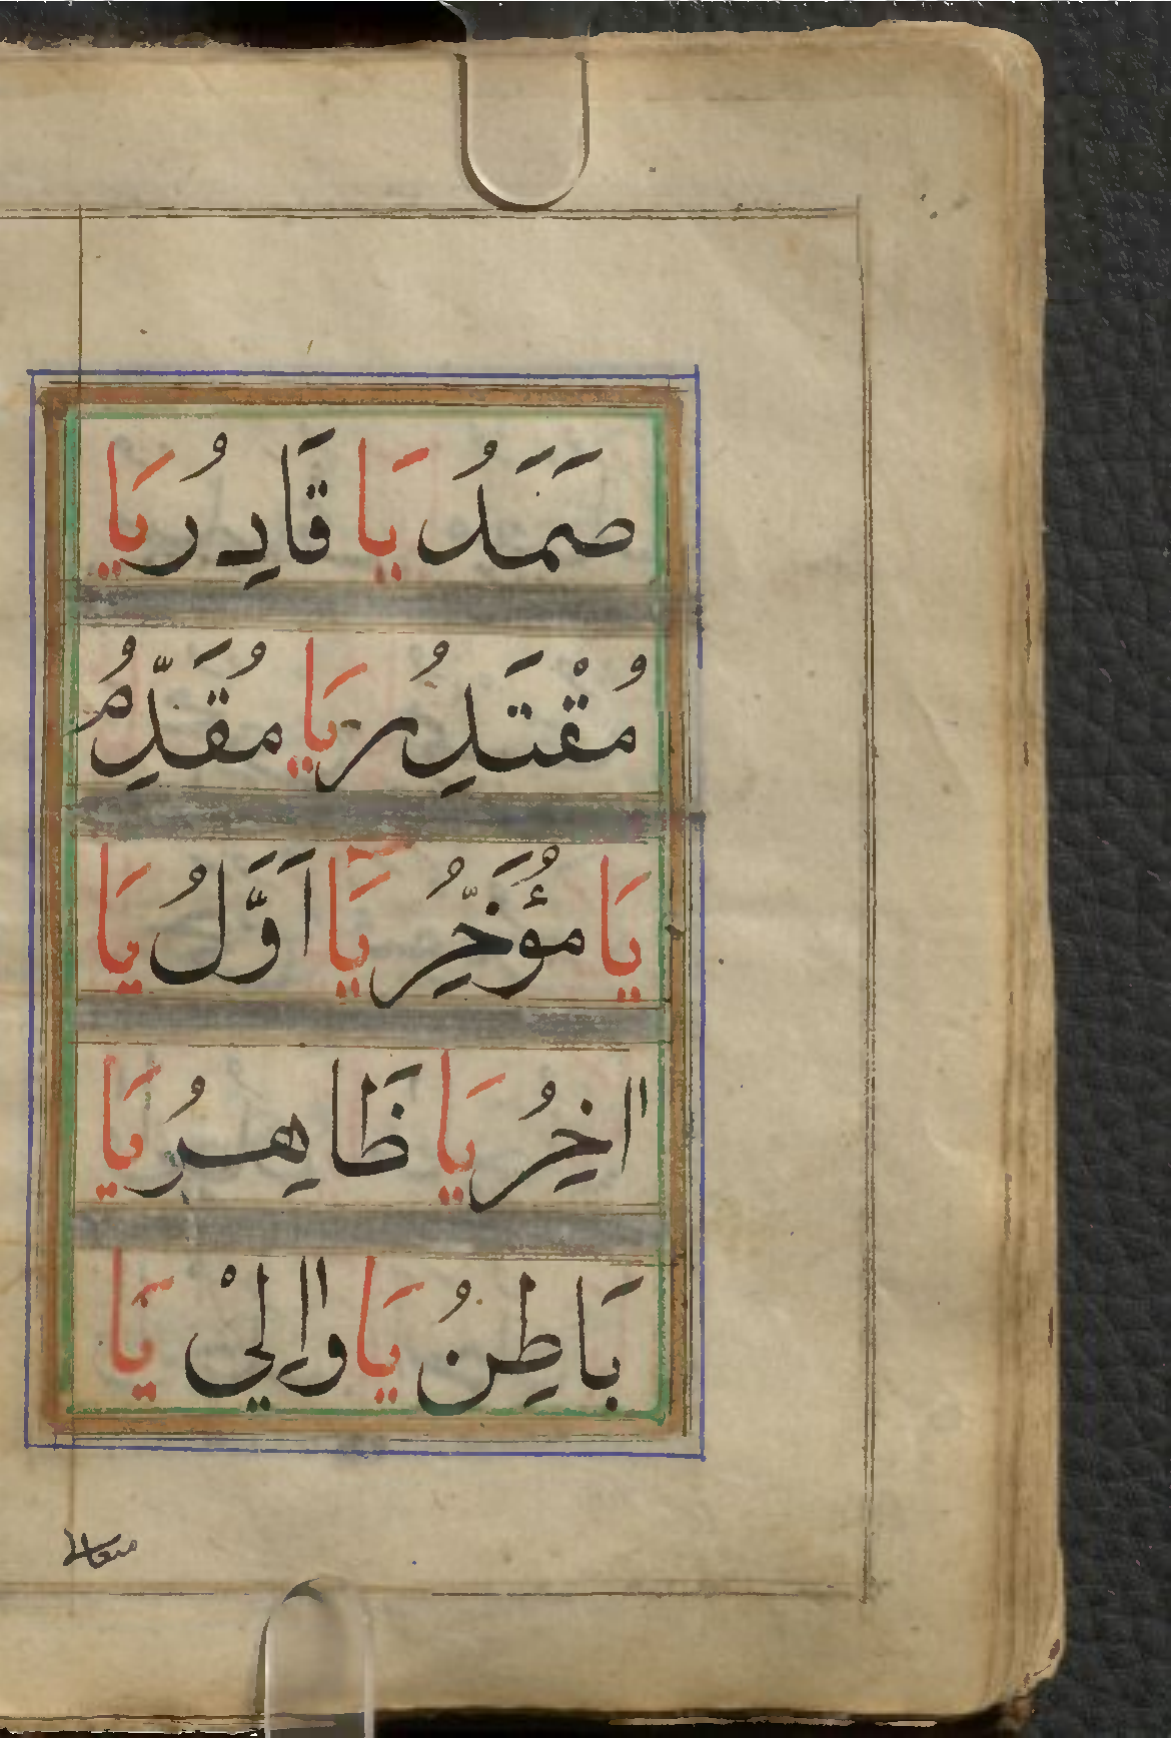 صَمَدُ يَا قَادِرُ يَا
مُقْتَدِرُ يَا مُقَدِّمُ
يَا مُؤَخِّرُ يَا اَوَّلُ يَا
اخِرُ يَا ظَاهِرُ يَا
بَاطِنُ يَا وَالِيْ يَا
متعالی